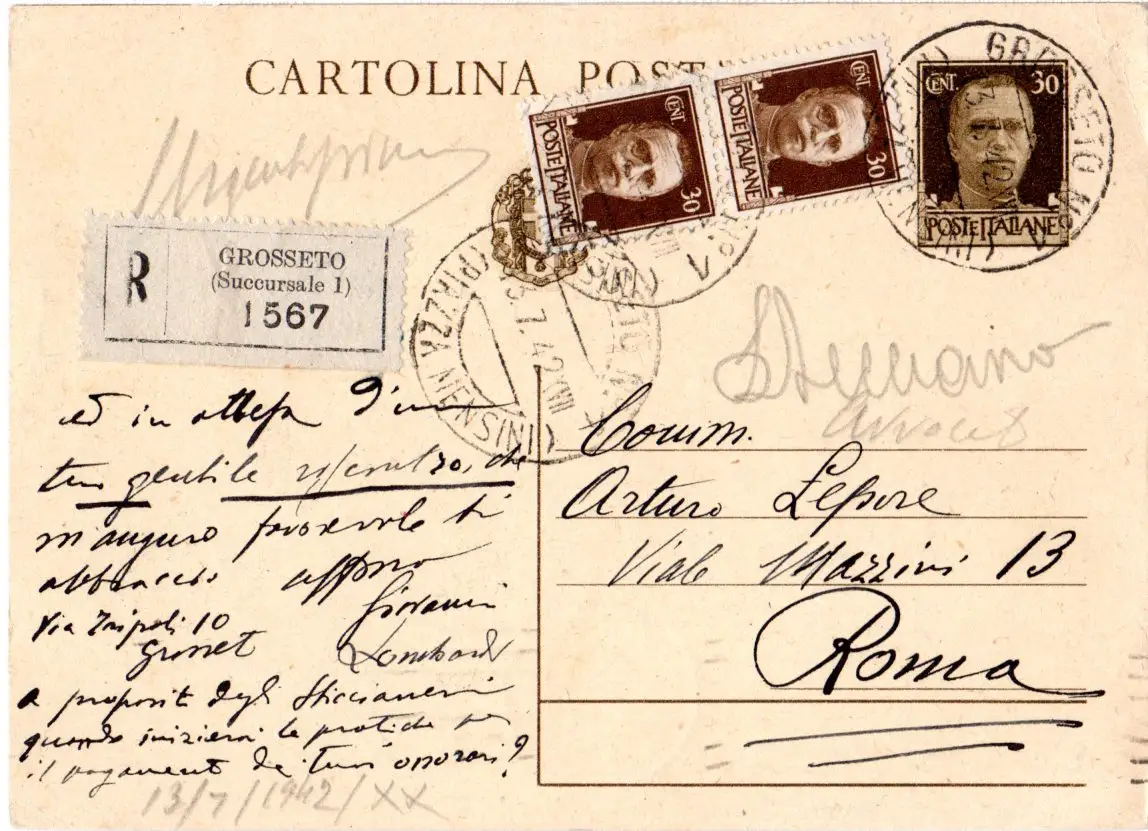 CARTOLINA POST
CENT. 30
POSTE ITALIANE
CENT. 30
POSTE ITALIANE
CENT. 30
POSTE ITALIANE
GROSSETO N° 1
GROSSETO N° 1
(PIAZZA MENSINI)
3.7.42 XVIII
R
GROSSETO
(Succursale 1)
1567
ed in attesa d'un
tuo gentile che
m'auguro favorevole ti
abbraccio affmo
Giovanni
Via Tripoli 10
Lombardi
a proposito degli
quando inizierai le pratiche per
il pagamento dei tuoi onorari?
13/7/1942/XX
Comm.
Arturo Lepore
Viale Mazzini 13
Roma